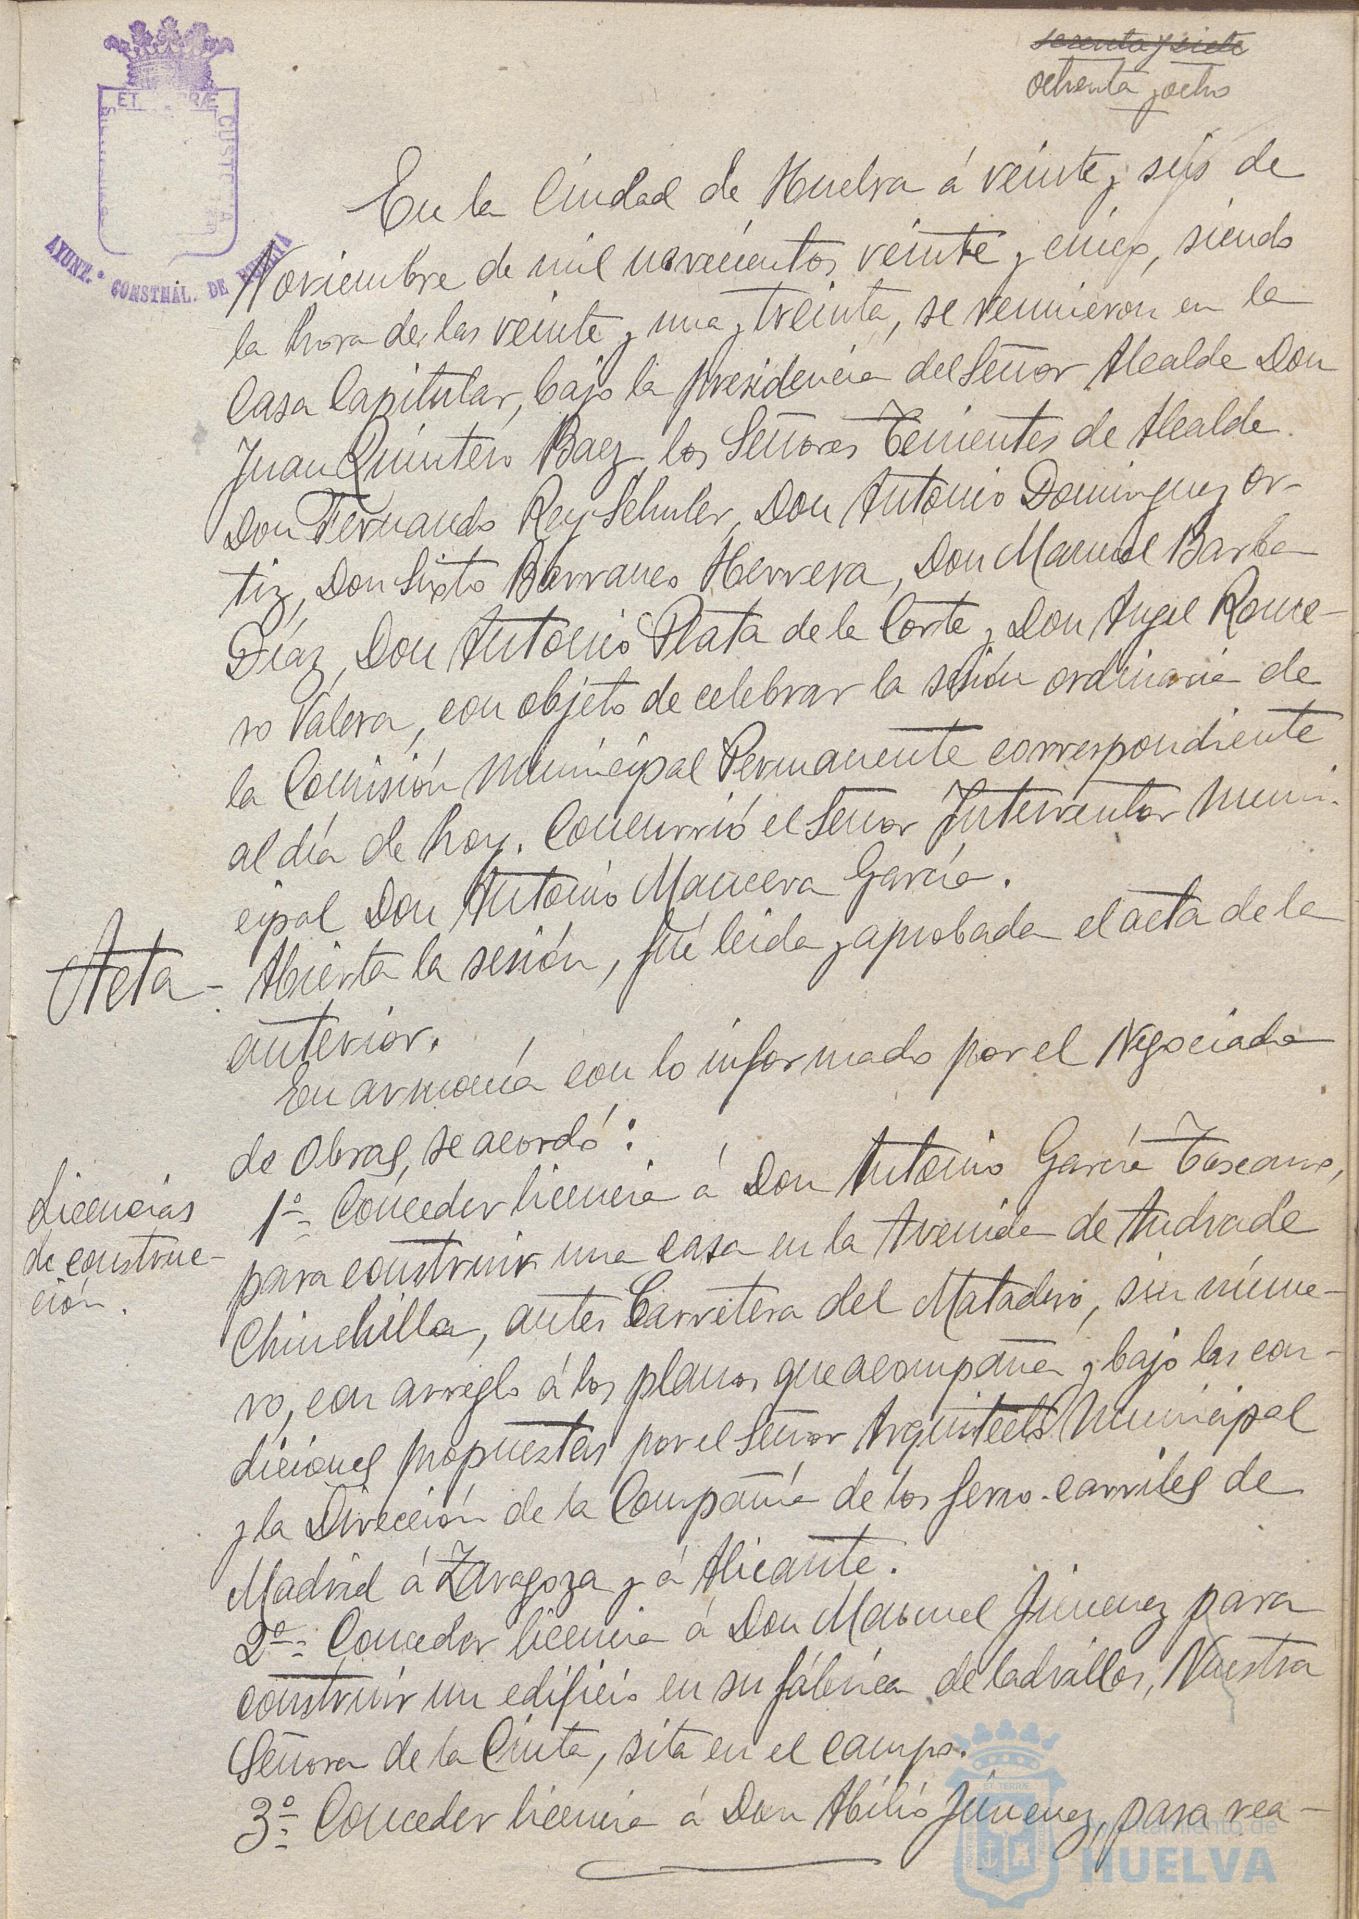 sesenta y siete
ochenta y ocho
ET TERRÆ CUSTODIA
AYUNT.º CONSTNAL. DE HUELVA
En la Ciudad de Huelva á veinte y seis de
Noviembre de mil novecientos veinte y cinco, siendo
la hora de las veinte y una y treinta, se reunieron en la
Casa Capitular, bajo la presidencia del Señor Alcalde Don
Juan Quintero Baez, los Señores Tenientes de Alcalde
Don Fernando Rey Schuler, Don Antonio Dominguez Or-
tiz, Don Sixto Barranco Herrera, Don Manuel Barba
Díaz, Don Antonio Plata de la Corte y Don Angel Rome-
ro Valera, con objeto de celebrar la sesión ordinaria de
la Comisión Municipal Permanente correspondiente
al día de hoy. Concurrió el Señor Interventor Muni-
cipal Don Antonio Mancera García.
Acta - Abierta la sesión, fué leida y aprobada el acta de la
anterior.
En armonía con lo informado por el Negociado
de Obras, se acordó:
Licencias
de construc-
ción.
1º- Conceder licencia á Don Antonio García Toscano,
para construir una casa en la Avenida de Andrade
Chinchilla, antes Carretera del Matadero, sin núme-
ro, con arreglo á los planos que acompaña y bajo las con-
diciones propuestas por el Señor Arquitecto Municipal
y la Dirección de la Compañía de los ferro-carriles de
Madrid á Zaragoza y á Alicante.
2º- Conceder licencia á Don Manuel Jimenez para
construir un edificio en su fábrica de ladrillos, Nuestra
Señora de la Cinta, sita en el campo.
3º- Conceder licencia á Don Abilio Jimenez, para rea-
ET TERRÆ
Ayuntamiento de
HUELVA